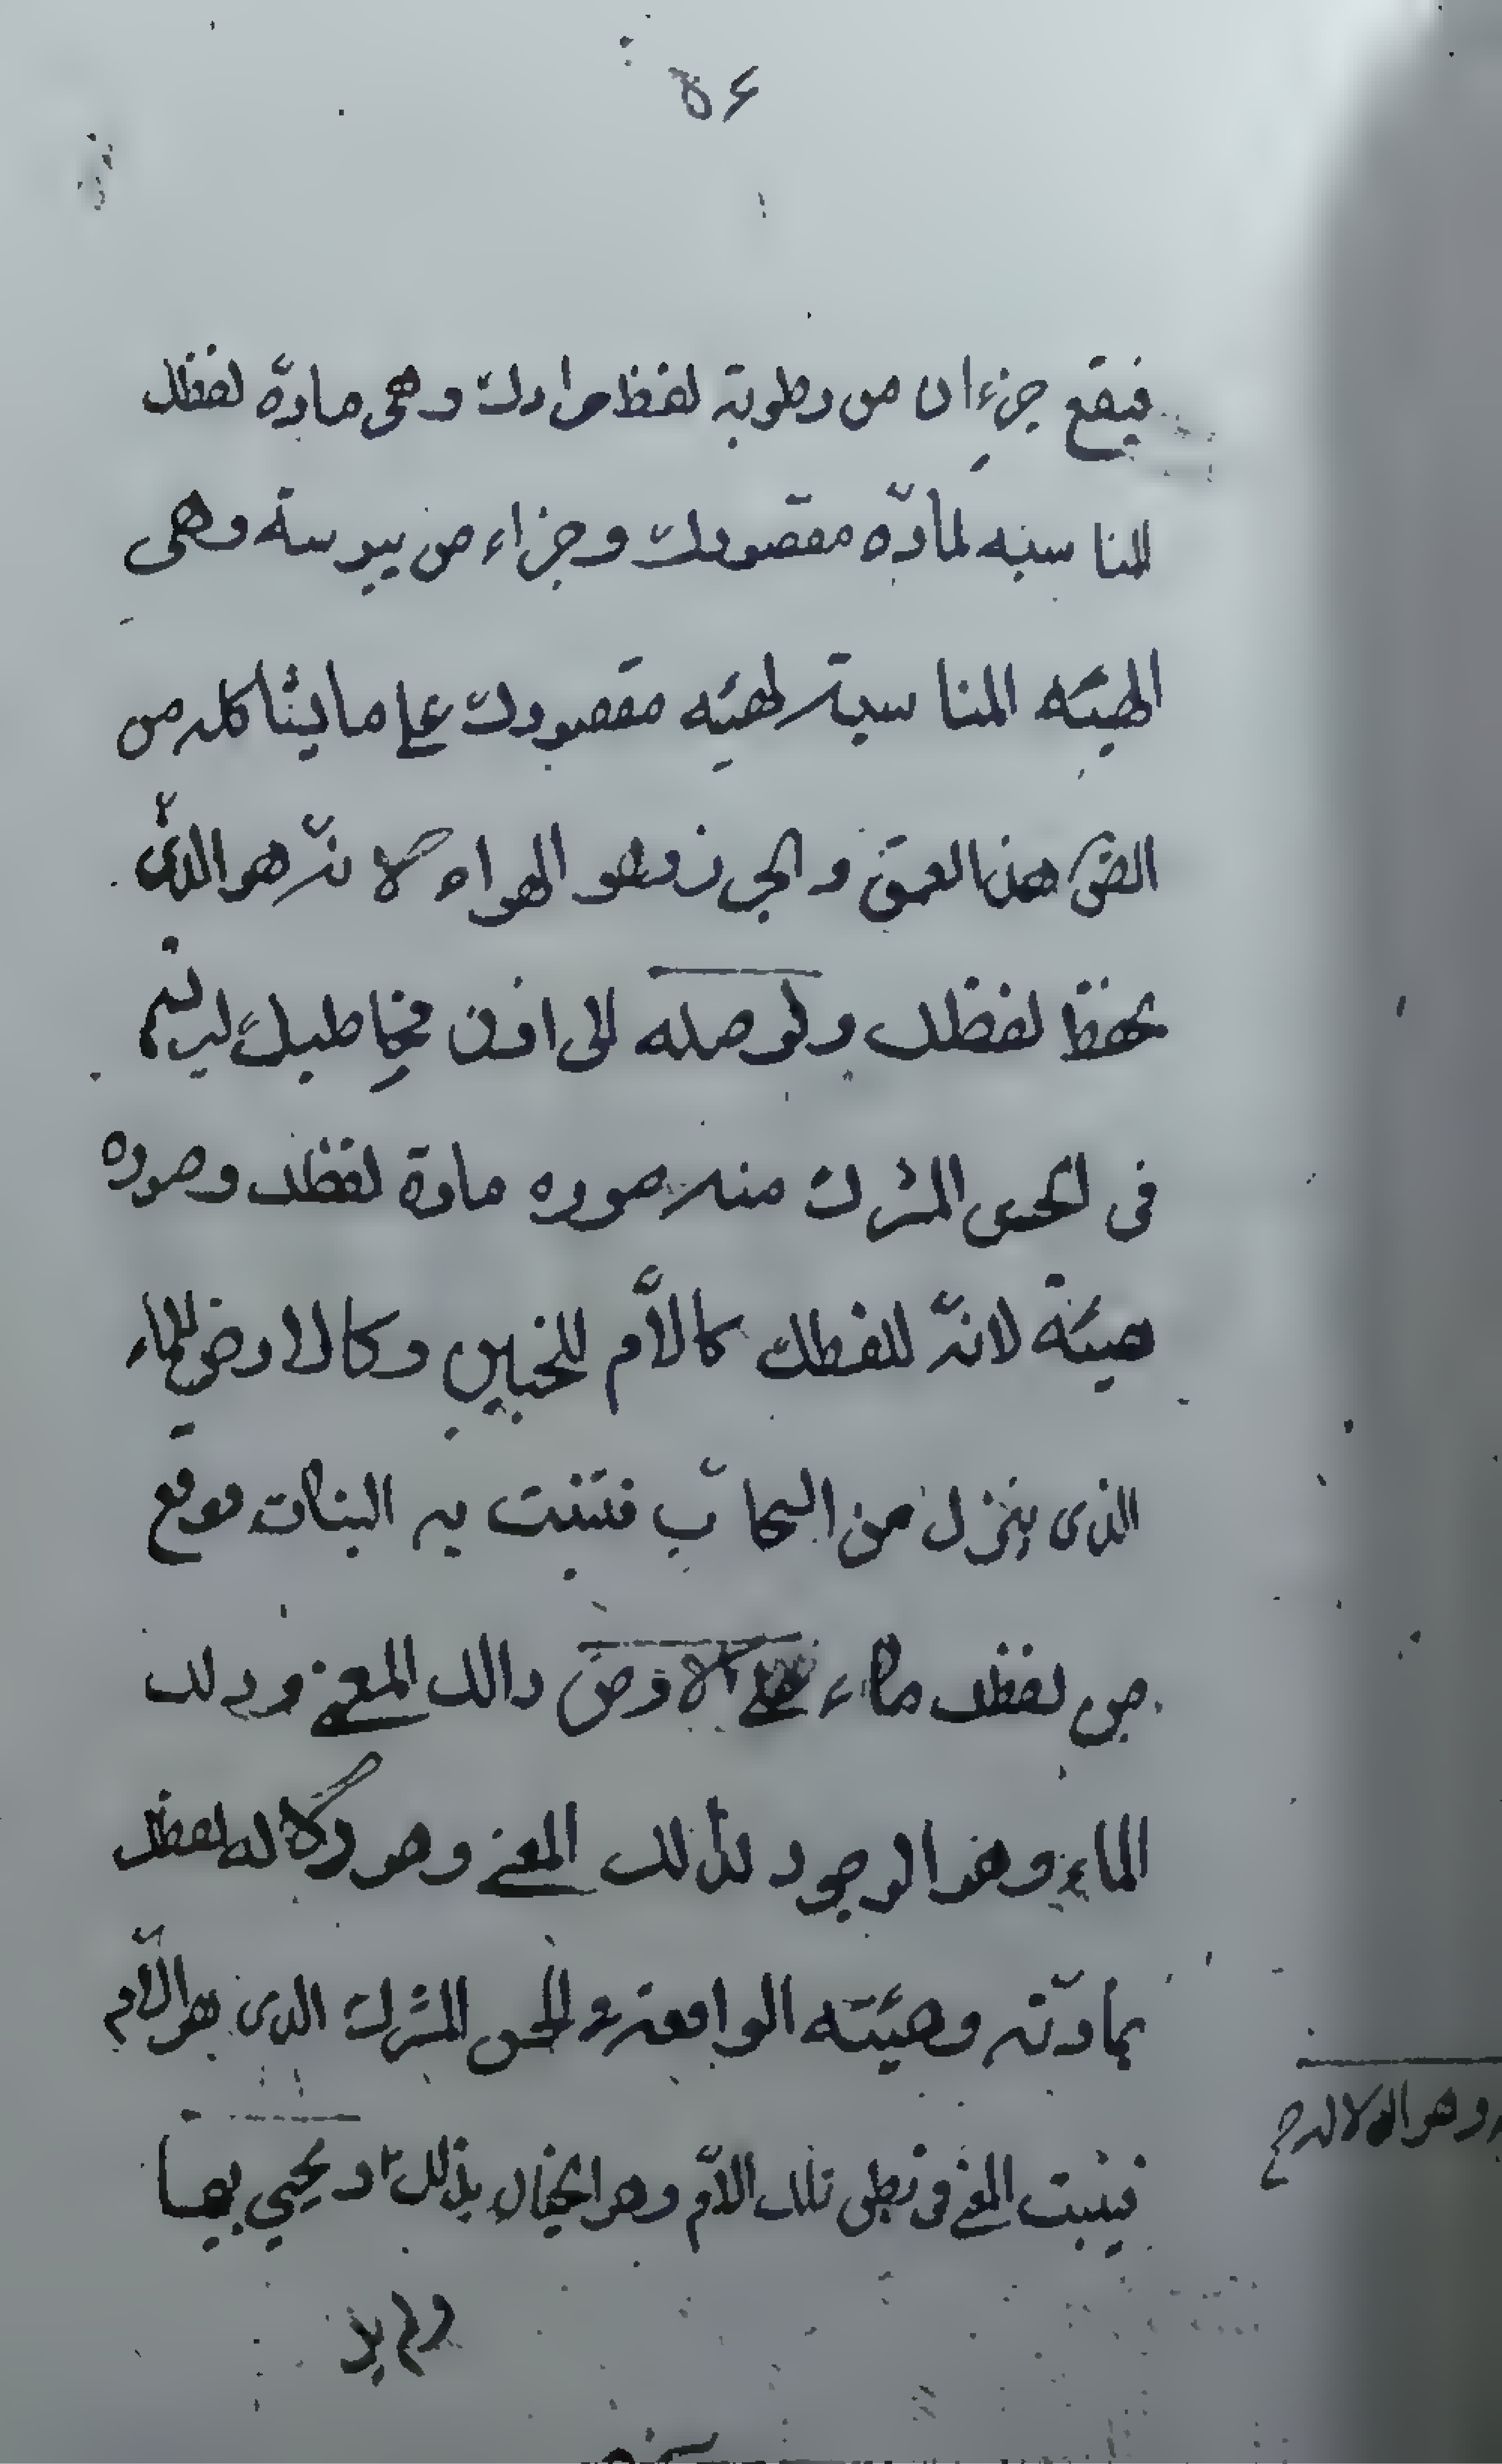 ٥٤
فيقع جزءان من رطوبة لفظ مرادك وهى مادّة لفظك
المناسبه لمادّه مقصودك وجزاء من يبوسة وهى
الهيئه المناسبة لهيئه مقصودك على ما يشاكله من
هذا العمق والجرز وهو الهواء لانّه هو الذى
يحفظ لفظك ويوصله الى اذن مخاطبك ليرتسم
فى الحس المشترك منه صوره مادة لفظك وصوره
هيئة لانّه للفظك كالاّم للجنين وكالارض للماء
الذى ينزل من السحاب فتنبت به النبات فوقع
من لفظك ماء على الارض ذالك المعنى وذلك
الماء هو الوجود لذلك المعنى وهو دلالة لفظك
بمادّته وهيئته الواقعة فى الحس المشترك الذى هو الاّم
فينبت المعنى فى بطن تلك الاّم وهو الخيال بذلك ويحيى بها
وهو الدلالة